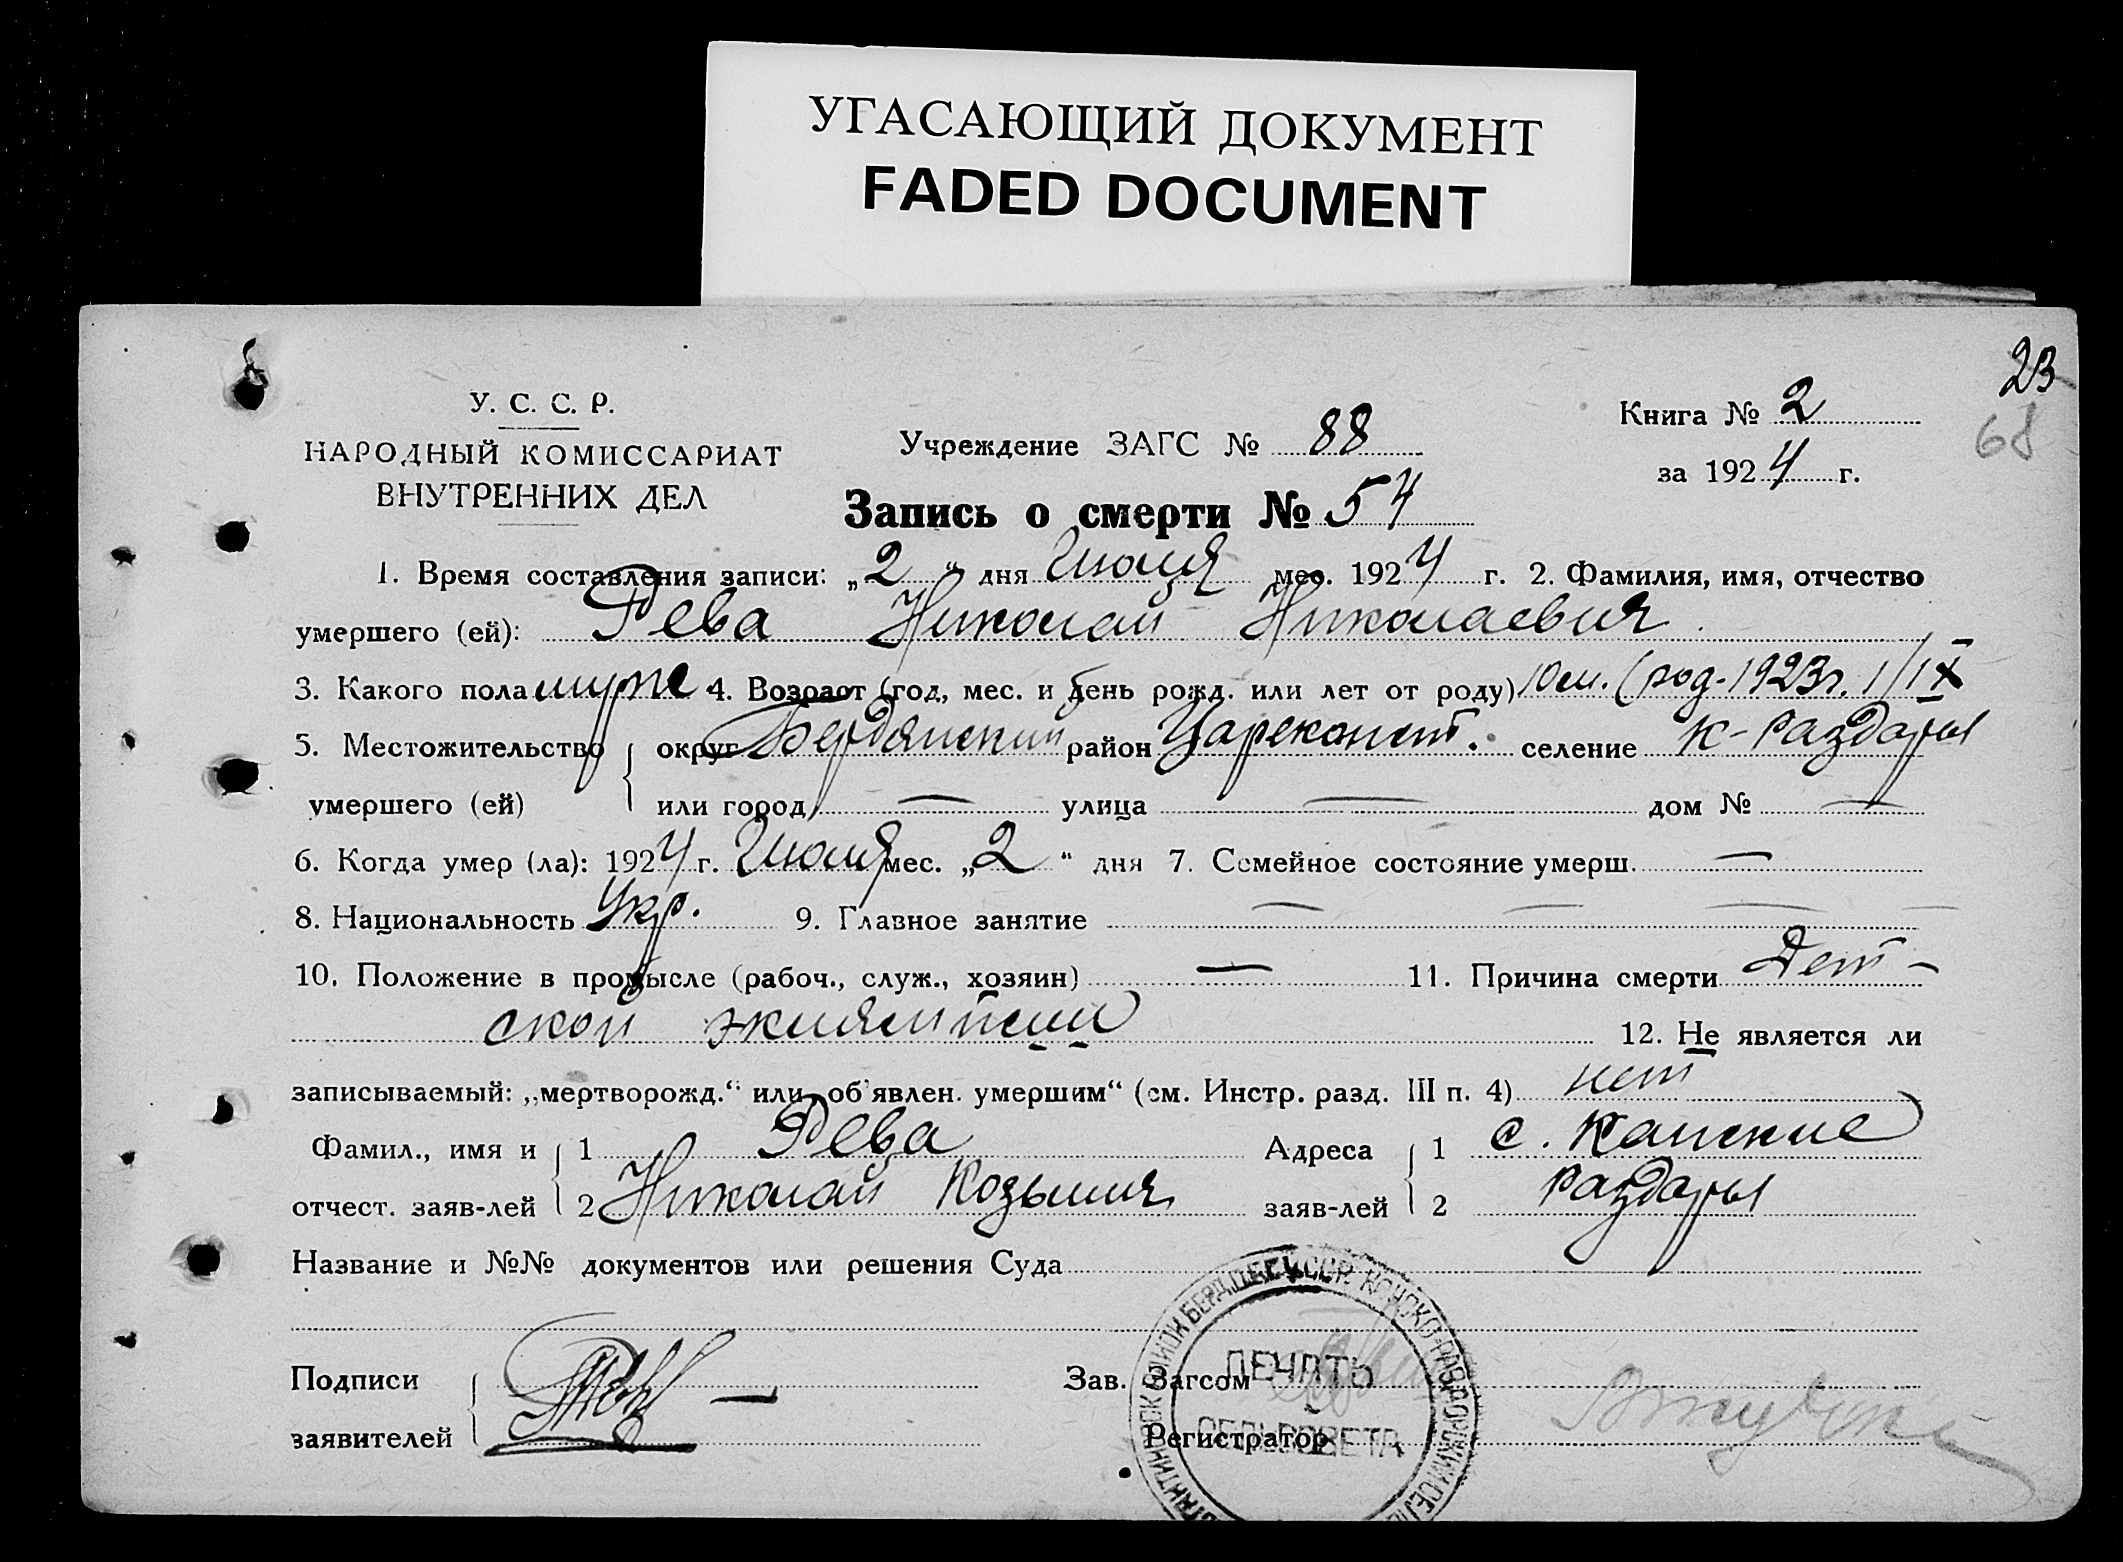 УГАСАЮЩИЙ ДОКУМЕНТ
FADED DOCUMENT
23
68
У. С. С. Р.
НАРОДНЫЙ КОМИССАРИАТ
ВНУТРЕННИХ ДЕЛ
Учреждение ЗАГС № 88
Книга № 2
за 1924 г.
Запись о смерти № 54
1. Время составления записи: „2“ дня Июля мес. 1924 г. 2. Фамилия, имя, отчество
умершего (ей): Рева Николай Николаевич
3. Какого пола муже 4. Возраст (год, мес. и день рожд. или лет от роду) 10 м. (род. 1923г. 1/IX
5. Местожительство округ Бердянский район Цареконст. селение К-Раздоры
умершего (ей) или город — улица — дом № —
6. Когда умер (ла): 1924 г. Июля мес. „2“ дня 7. Семейное состояние умерш. —
8. Национальность Укр. 9. Главное занятие — — — —
10. Положение в промысле (рабоч., служ., хозяин) — 11. Причина смерти Дет-
ской эклямпсии 12. Не является ли
записываемый: „мертворожд.“ или „об'явлен. умершим“ (см. Инстр. разд. III п. 4) нет
Фамил., имя и 1 Рева Адреса 1 с. Канские
отчест. заяв-лей 2 Николай Козьмич заяв-лей 2 Раздоры
Название и №№ документов или решения Суда
Подписи
заявителей
Зав. Загсом
Регистратор
ПЕЧАТЬ
СЕЛЬСОВЕТА